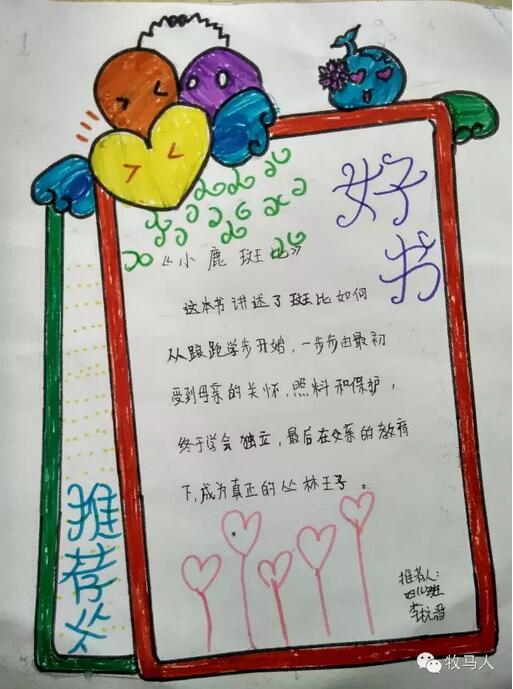 好书
推荐
《小鹿斑比》
这本书讲述了斑比如何
从踉跄学步开始,一步步由最初
受到母亲的关怀、照料和保护,
终于学会独立,最后在父亲的教育
下,成为真正的丛林王子。
推荐人:
牧马人